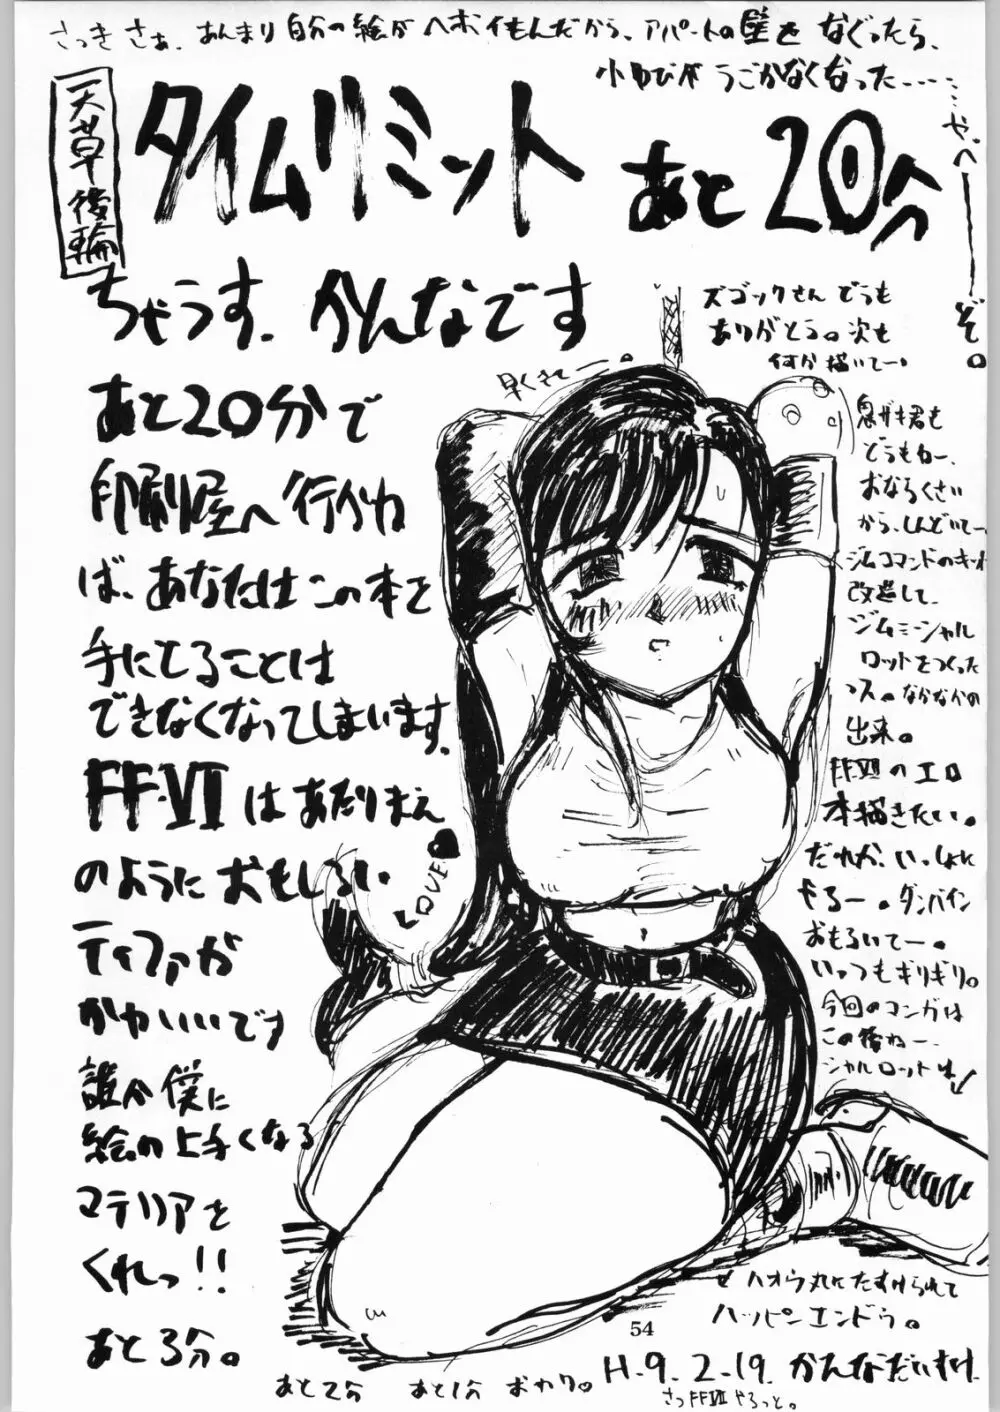 さっきさぁ、あんまり自分の絵がヘボイもんだから、アパートの壁をなぐったら、
小ゆびがうごかなくなった……
や。べーーーぞ。
天草後輪
タイムリミット あと20分
ちゃうす、かんなです
あと20分で
印刷屋へ行かね
ば、あなたはこの本を
手にてることは
できなくなってしまいます。
FF・VIIはあたりまえ
のようにおもしろい
ティファが
かわいいです
誰か僕に
絵の上手くなる
マテリアを
くれっ!!
あと3分。
あと2分 あと1分 おわり。
早くきてー。
LOVE
ズゴックさんどうも
ありがとう。次も
何か描いてー。
君も
どうもねー、
おならくさい
から、しんどいてー、
ジムコマンドのキット
改造して、
ジムミーシャル
ロットをつくった
っス。なかなかの
出来。
FFVIIのエロ
本描きたい。
だれか、いっしょに
やろー。ダンバイン
おもろいてー。
いっつもギリギリ。
今回のマンガは
この後ねー、
シャルロットは
ハオウ丸にたすけられて
ハッピンエンドゥ。
54
H.9.2.19. かんなだいすけ
さっFFVIIやろっと。